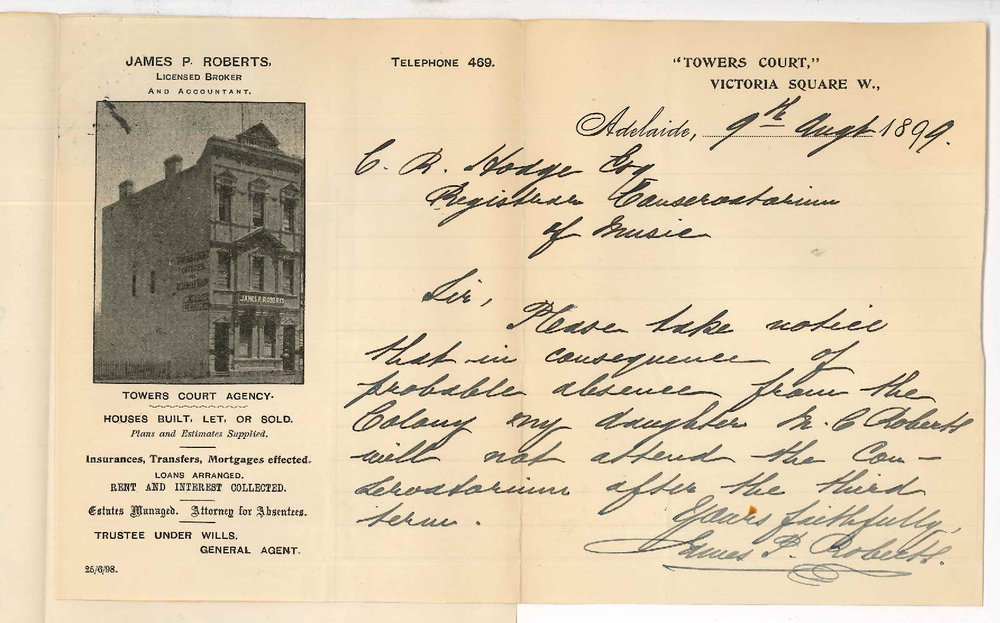 JAMES P. ROBERTS,
LICENSED BROKER
AND ACCOUNTANT.
JAMES P. ROBERTS
TOWERS COURT AGENCY.
HOUSES BUILT, LET, OR SOLD.
Plans and Estimates Supplied.
Insurances, Transfers, Mortgages effected.
LOANS ARRANGED.
RENT AND INTEREST COLLECTED.
Estates Managed. Attorney for Absentees.
TRUSTEE UNDER WILLS,
GENERAL AGENT.
25/6/98.
TELEPHONE 469.
"TOWERS COURT,"
VICTORIA SQUARE W.,
Adelaide, 9th Augt 1899.
C. R. Hodge Esq
Registrar Conservatorium
of Music
Sir,
Please take notice
that in consequence of
probable absence from the
Colony my daughter M. C Roberts
will not attend the Con-
servatorium after the third
term.
Yours faithfully,
James P. Roberts.